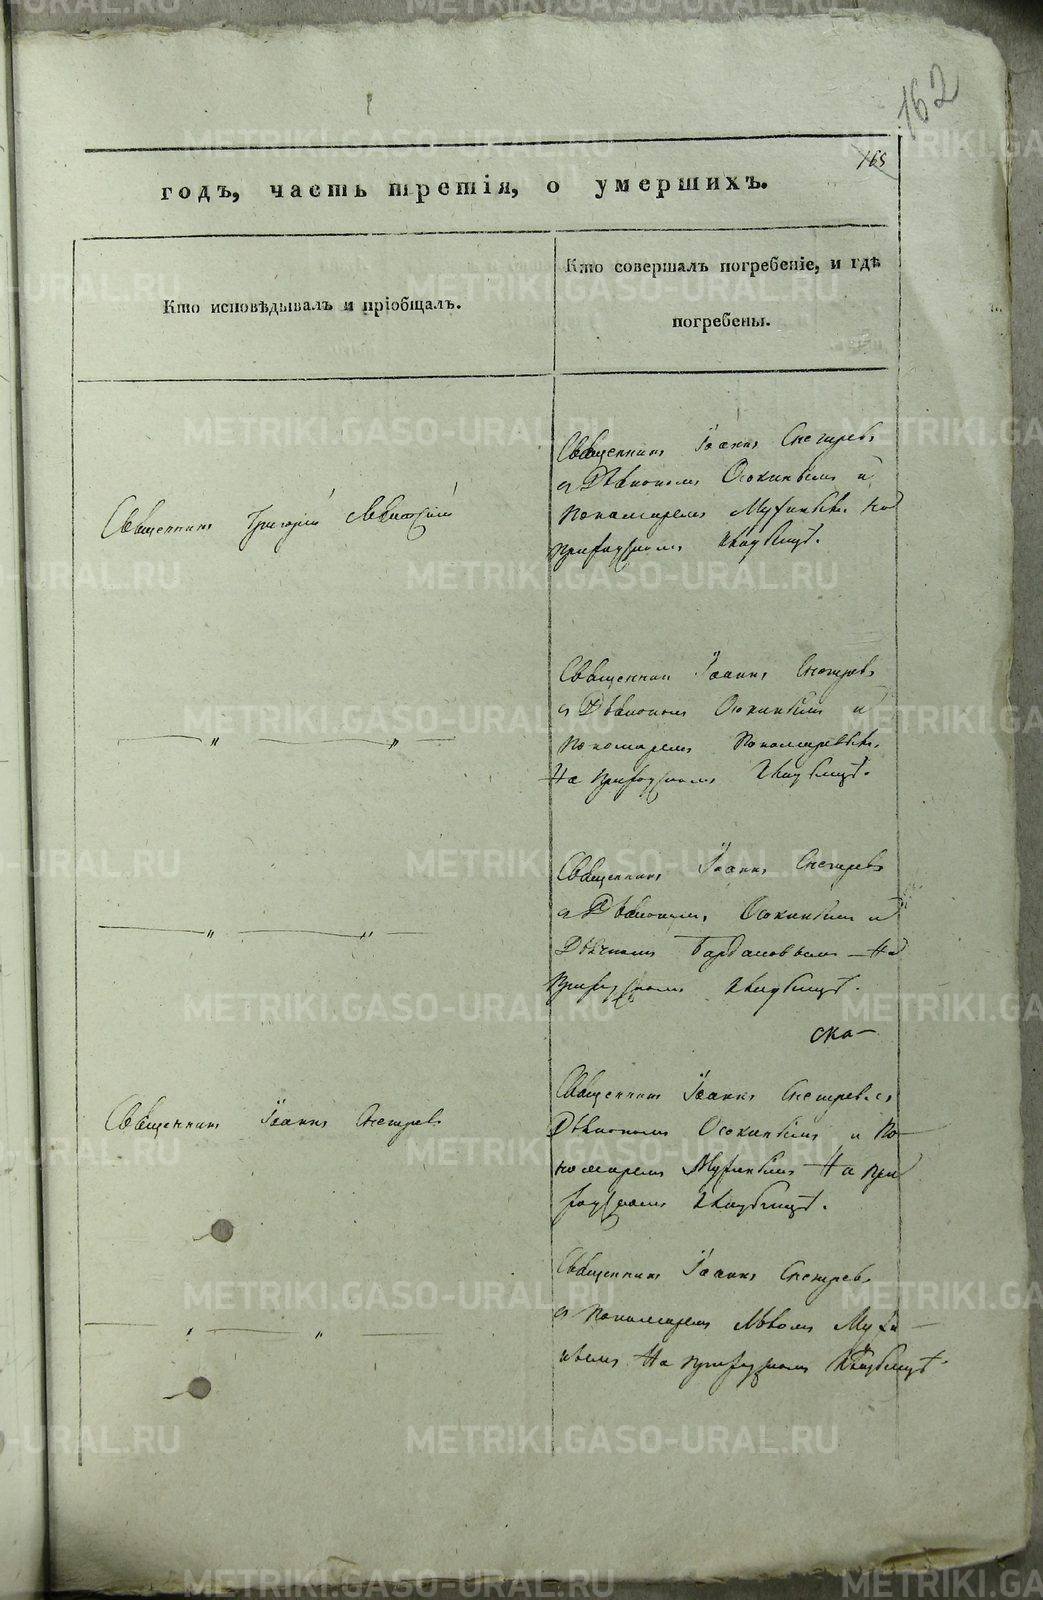 162
165
годъ, часть третія, о умершихъ.
Кто исповѣдывалъ и пріобщалъ.
Кто совершалъ погребеніе, и гдѣ
погребены.
Священникъ Іоаннъ Снегиревъ
съ Дьякономъ Осокинымъ и
Пономаремъ Мухинымъ на
приходскомъ кладбищѣ.
Священникъ Григорій Левитскій
Священник Іоаннъ Снегиревъ
съ Дьякономъ Осокинымъ и
Пономаремъ Пономаревымъ
На приходскомъ кладбищѣ.
— " — " —
Священникъ Іоаннъ Снегиревъ
съ Дьякономъ Осокинымъ и
Дьячкомъ на
приходскомъ кладбищѣ.
— " — " —
ска-
Священникъ Іоаннъ Снегиревъ съ
Дьякономъ Осокинымъ и По-
номаремъ Мухинымъ На при
ходскомъ кладбищѣ.
Священникъ Іоаннъ Снегиревъ
Священникъ Іоаннъ Снегиревъ
съ Пономаремъ Мухи-
нымъ На приходскомъ кладбищѣ.
— " — " —
METRIKI.GASO-URAL.RU